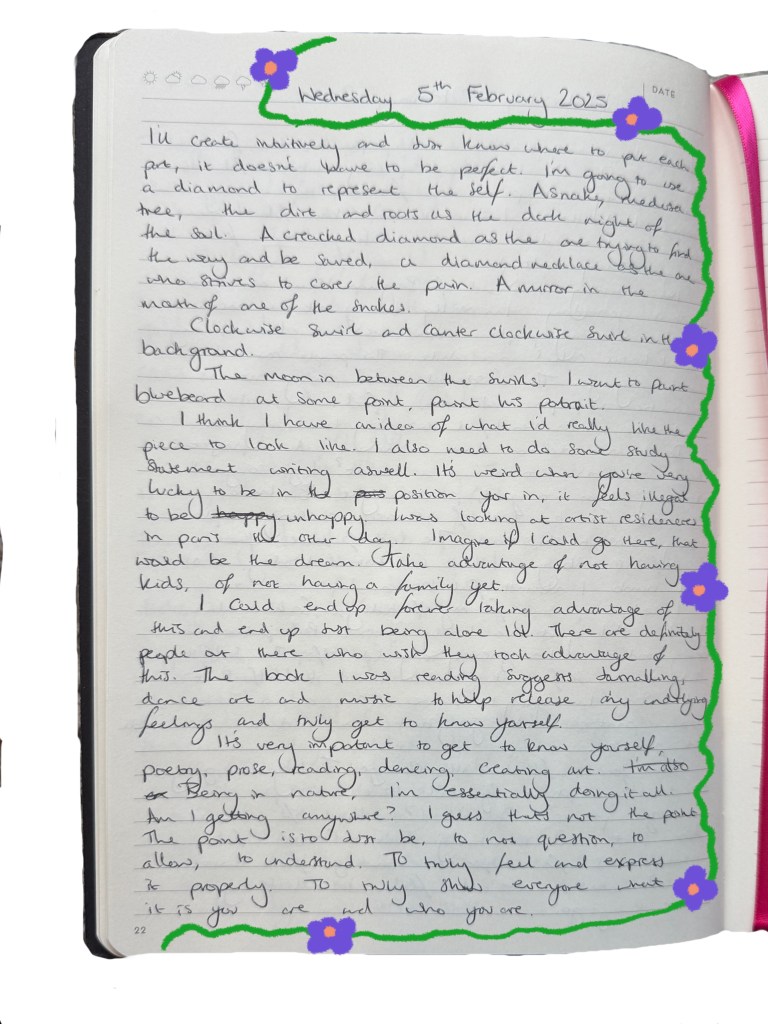 Wednesday 5th February 2025
DATE
I'll create intuitively and just know where to put each
part, it doesn't have to be perfect. I'm going to use
a diamond to represent the self. A snake, medusa
tree, the dirt and roots as the dark night of
the soul. A creached diamond as the one trying to find
the way and be saved, a diamond necklace as the one
who strives to cover the pain. A mirror in the
mouth of one of the snakes.
Clockwise swirl and counter clockwise swirl in the
background.
The moon in between the swirls. I want to paint
bluebeard at some point, paint his potrait.
I think I have an idea of what i'd really like the
piece to look like. I also need to do some study
statement writing aswell. It's weird when you're very
lucky to be in the pos position your in, it feels illegal
to be happy unhappy. I was looking at artist residences
in paris the other day. Imagine if I could go there, that
would be the dream. Take advantage of not having
kids, of not having a family yet.
I could end up forever taking advantage of
this and end up just being alone lol. There are definitely
people out there who wish they took advantage of
this. The book I was reading suggests journalling,
dance art and music to help release any underlying
feelings and truly get to know yourself.
It's very important to get to know yourself,
poetry, prose, reading, dancing, creating art. I'm also
Being in nature, I'm essentially doing it all.
Am I getting anywhere? I guess that's not the point
The point is to just be, to not question, to
allow, to understand. To truly feel and express
it properly. To truly show everyone what
it is you are and who you are.
22